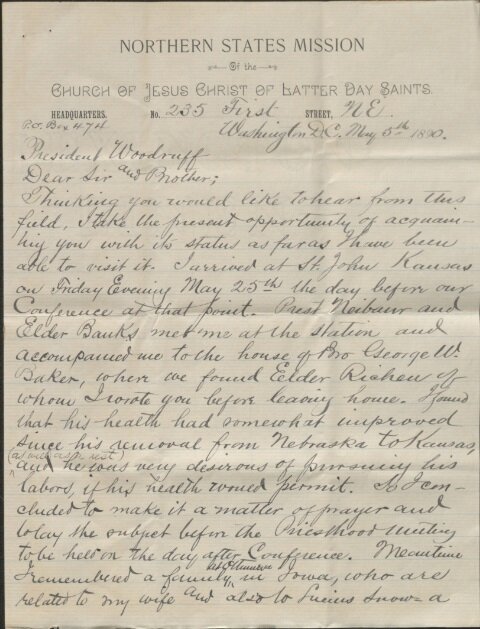 NORTHERN STATES MISSION
Of the
CHURCH OF JESUS CHRIST OF LATTER DAY SAINTS.
HEADQUARTERS. No. 235 First STREET, N.E.
P.O. Box 474
Washington D.C. May 5th 1890.
President Woodruff
Dear Sir and Brother;
Thinking you would like to hear from this
field, I take the present opportunity of acquain-
ting you with its status as far as I have been
able to visit it. I arrived at St. John Kansas
on Friday Evening May 25th the day before our
Conference at that point. Prest Neibaur and
Elder Banks met me at the station and
accompanied me to the house of Bro George W.
Baker, where we found Elder Richen of
whom I wrote you before leaving home. I found
that his health had somewhat improved
since his removal from Nebraska to Kansas,
(as well as pr rest)
and he was very desirous of pursuing his
labors, if his health would permit. So I con-
cluded to make it a matter of prayer and
to lay the subject before the Priesthood meeting
to be held on the day after Conference. Meantime
I remembered a family in Iowa, who are
related to my wife and also to Lucius Snow = a